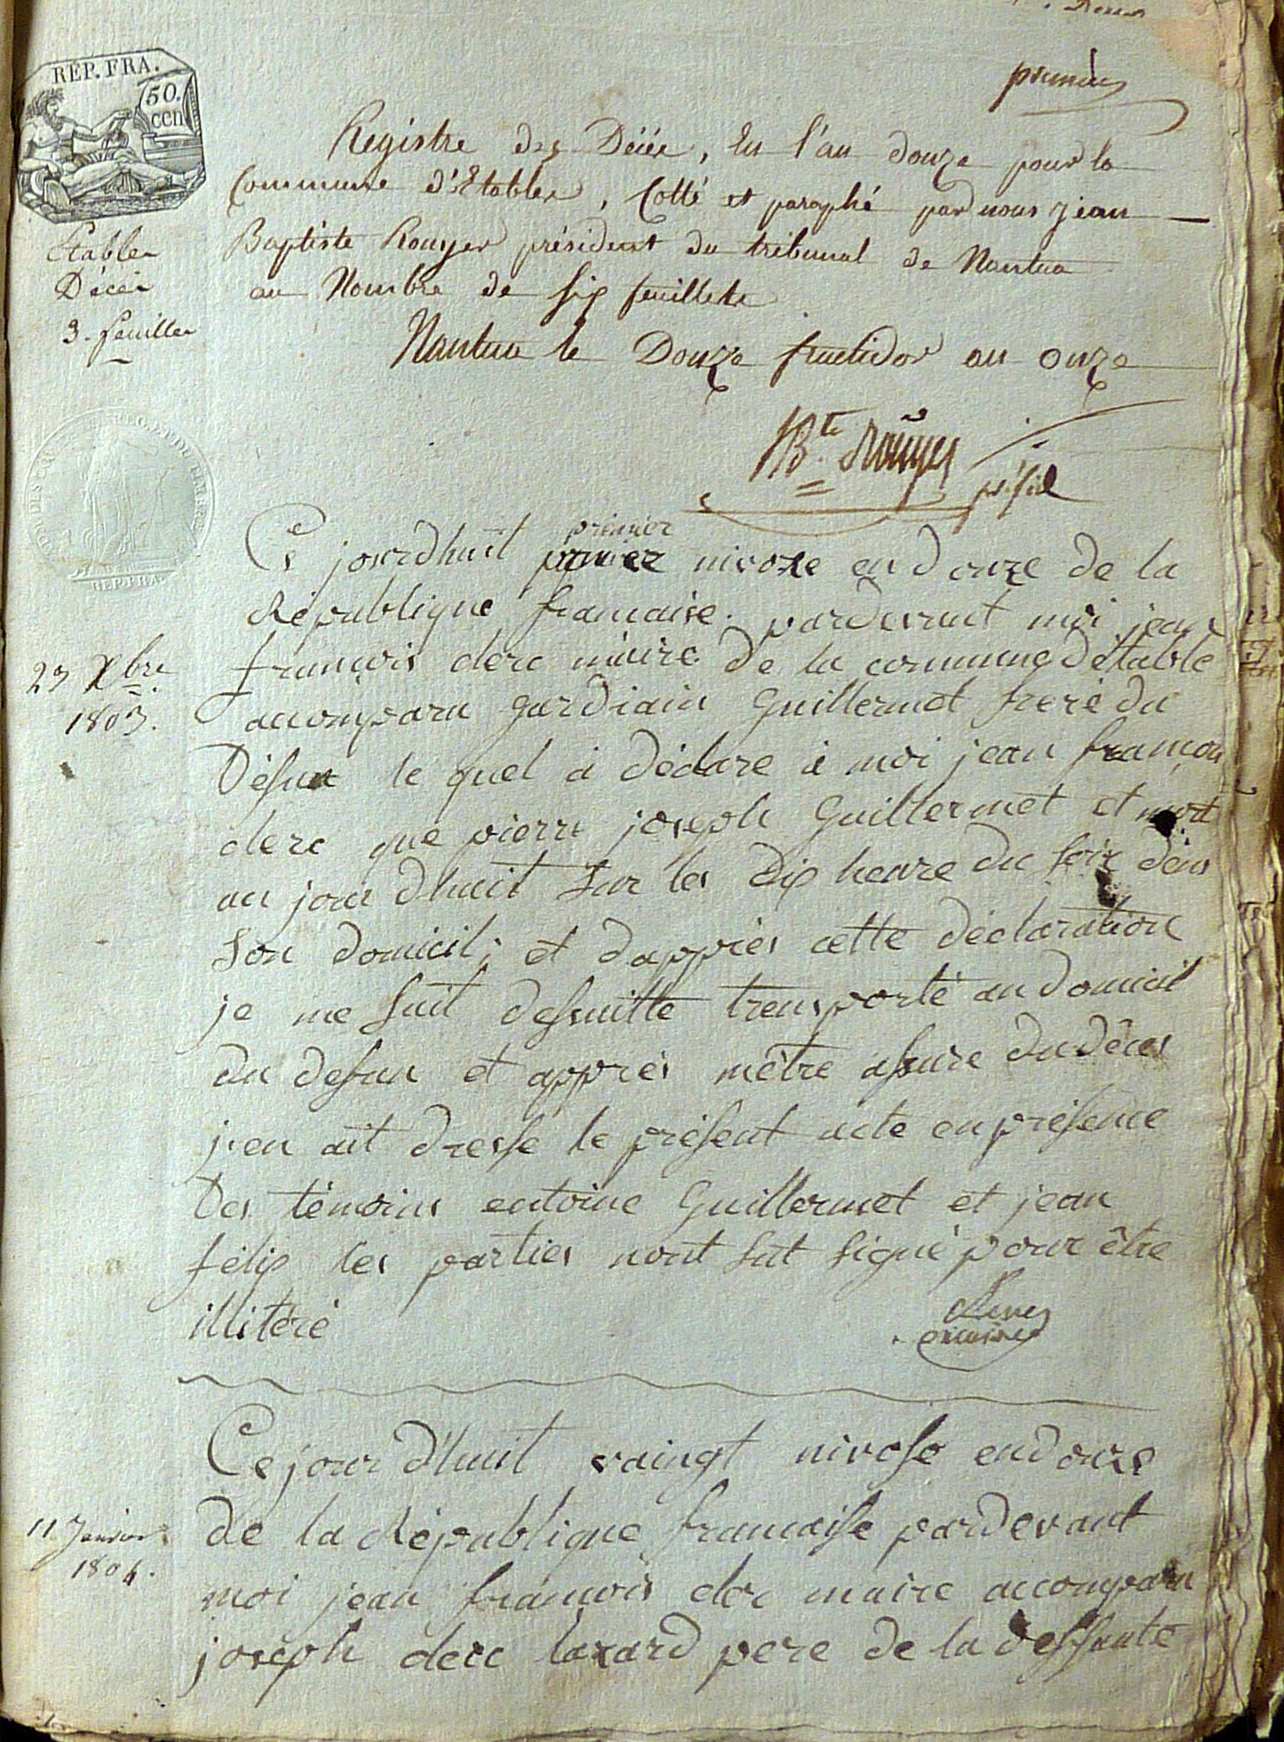 premier
REP. FRA.
50.
cen
Registre des Décée, En l'an douze pour la
Commune d'Etables, Cotté et paraphé par nous jean
Baptiste Rouyer président du tribunal de Nantua
au Nombre de six feuillets
Nantua le Douze fructidor an onze
Etables
Décès
3. feuilles
JBte Rouyer
présid
REP. FRA.
Ce jourdhuit premier nivoze en douze de la
premier
République francaise. pardevant moi jean
francois clerc maire de la commune détable
accomparu gardiain Guillermet frere du
Défun le quel à déclare à moi jean francois
clerc que pierre joseph Guillermet et mort
au jour dhuit sur les dix heure du soir dens
son domicil; et dapprès cette déclaration
je me suit desuitte trensporté au domicil
du defun et apprès mêtre assure du déces
j'en ait dresse le présent acte en présence
Des témoins entoine Guillermet et jean
félix les parties nont sut signé pour être
illitéré
Clerc
maire
23 Xbre
1803.
Ce jour d'huit vaingt nivose en douze
de la République francaisse pardevant
moi jean francois clerc maire accomparu
joseph clerc lazard pere de la deffunte
11 Janvier
1804.